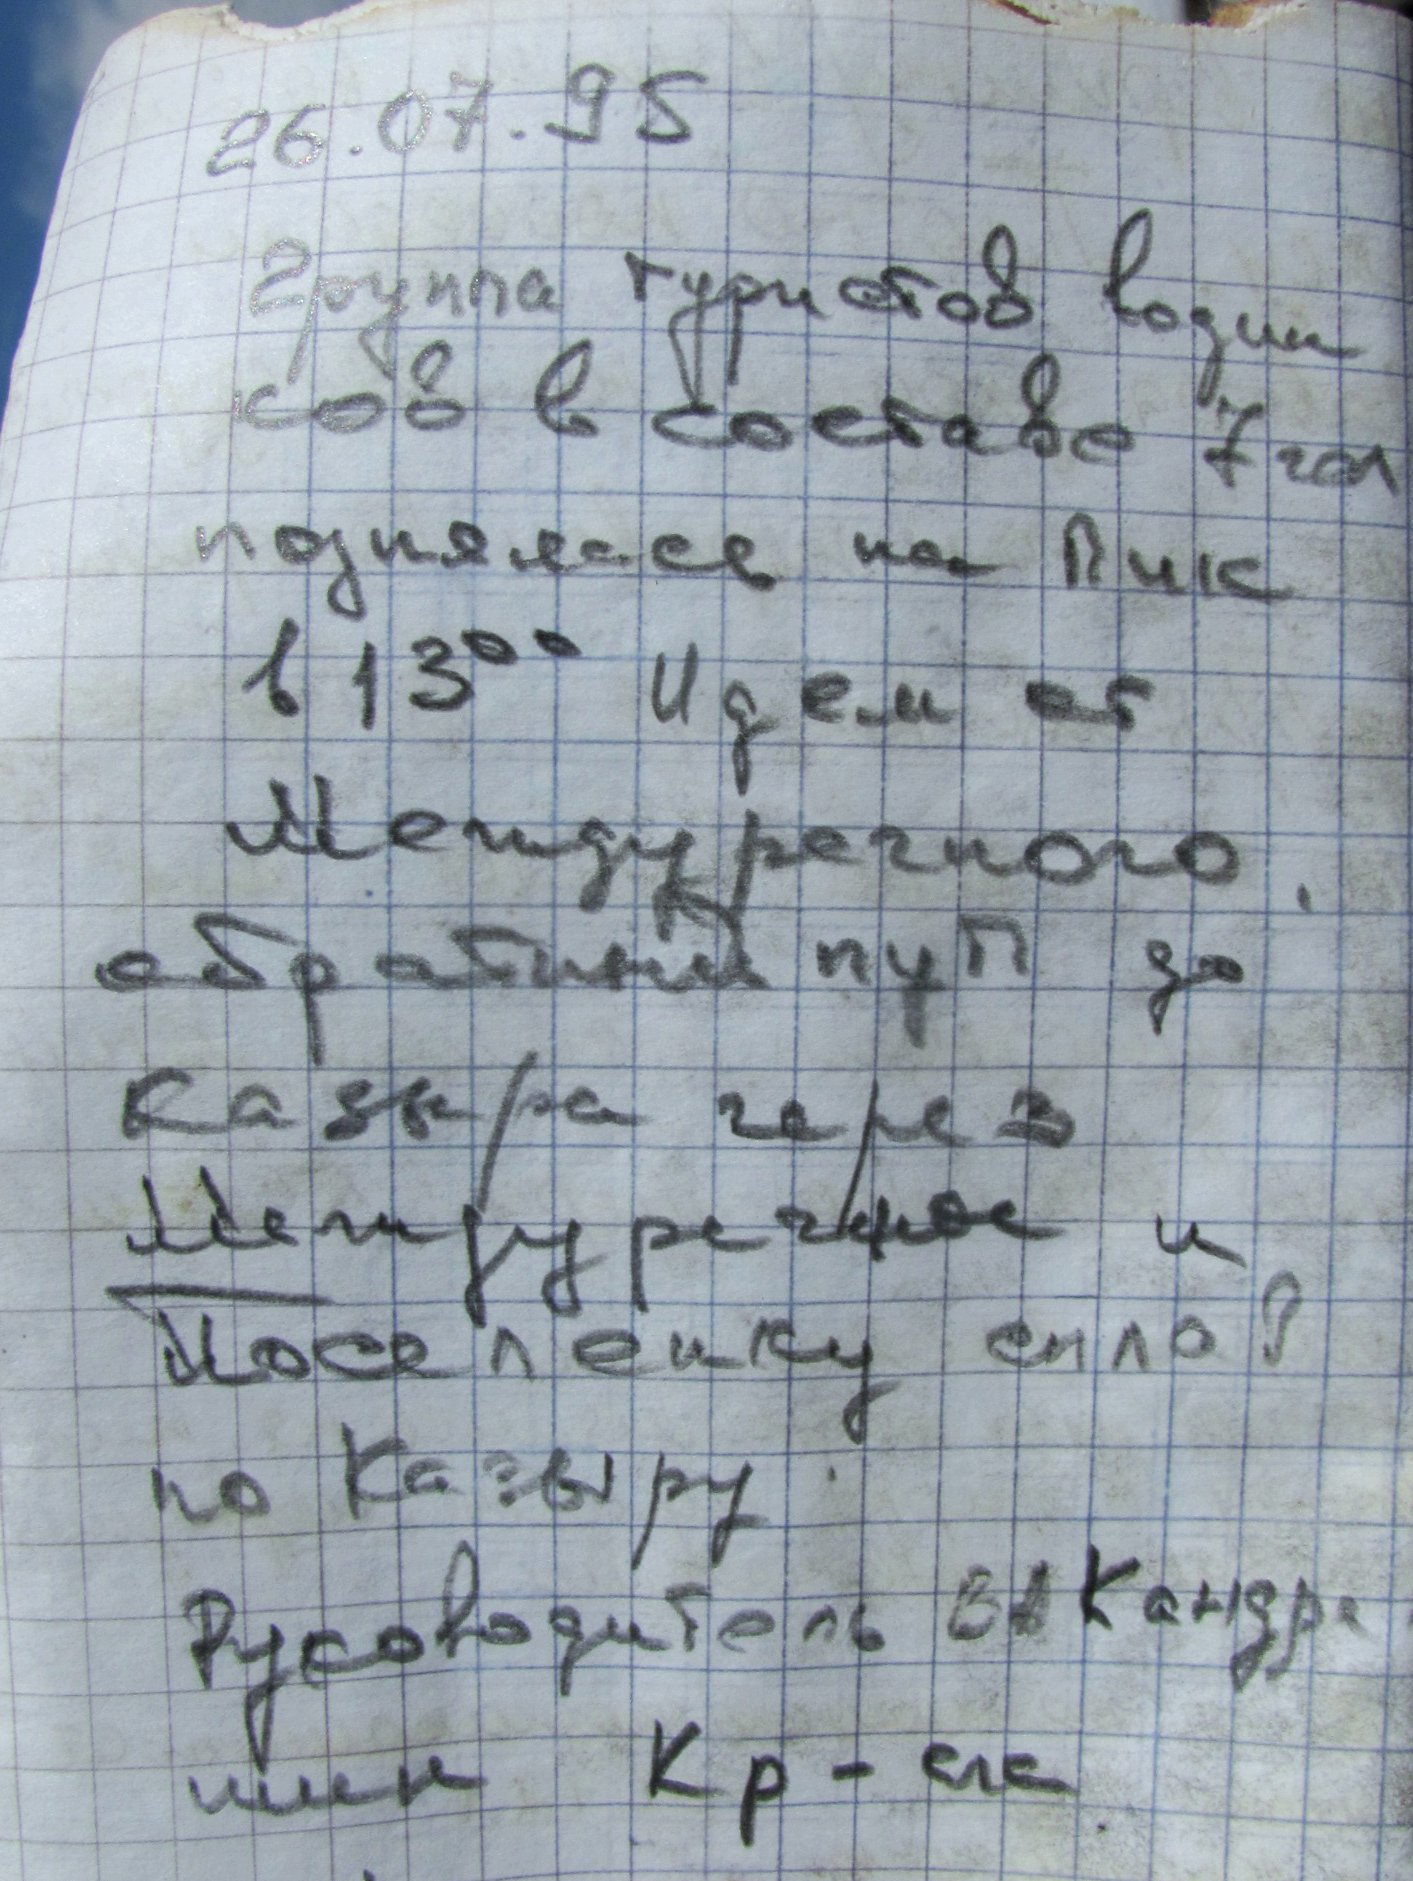 26.07.95
Группа туристов водни
ков в составе 7 чел
поднялась на Пик
в 13⁰⁰ Идем от
Междуречного,
обратный путь до
Казыра через
Междуречное и
Поселенку сплав
по Казыру.
Руководитель ВА Кандра
шин Кр-ск